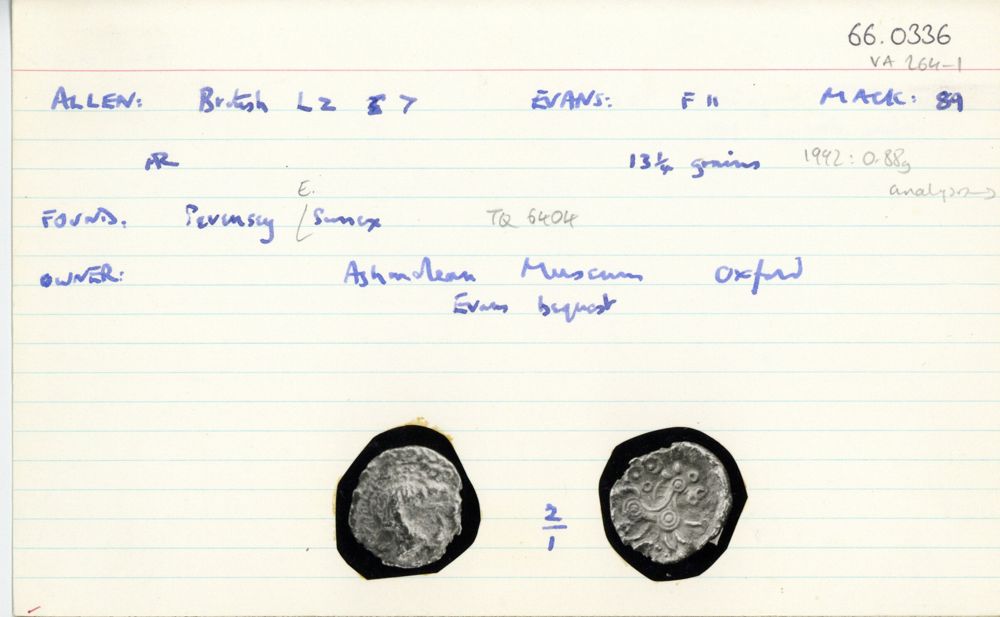 66.0336
VA 264-1
ALLEN: British LZ 7 EVANS: F 11 MACK: 89
AR 13 1/4 grains 1992: 0.88g
analysis →
E.
FOUND. Pevensey / Sussex TQ 6404
OWNER: Ashmolean Museum Oxford
Evans bequest
2
1